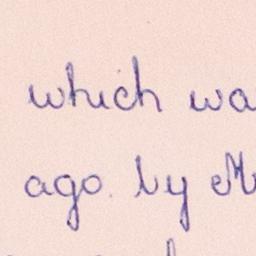 which wa
ago. by M